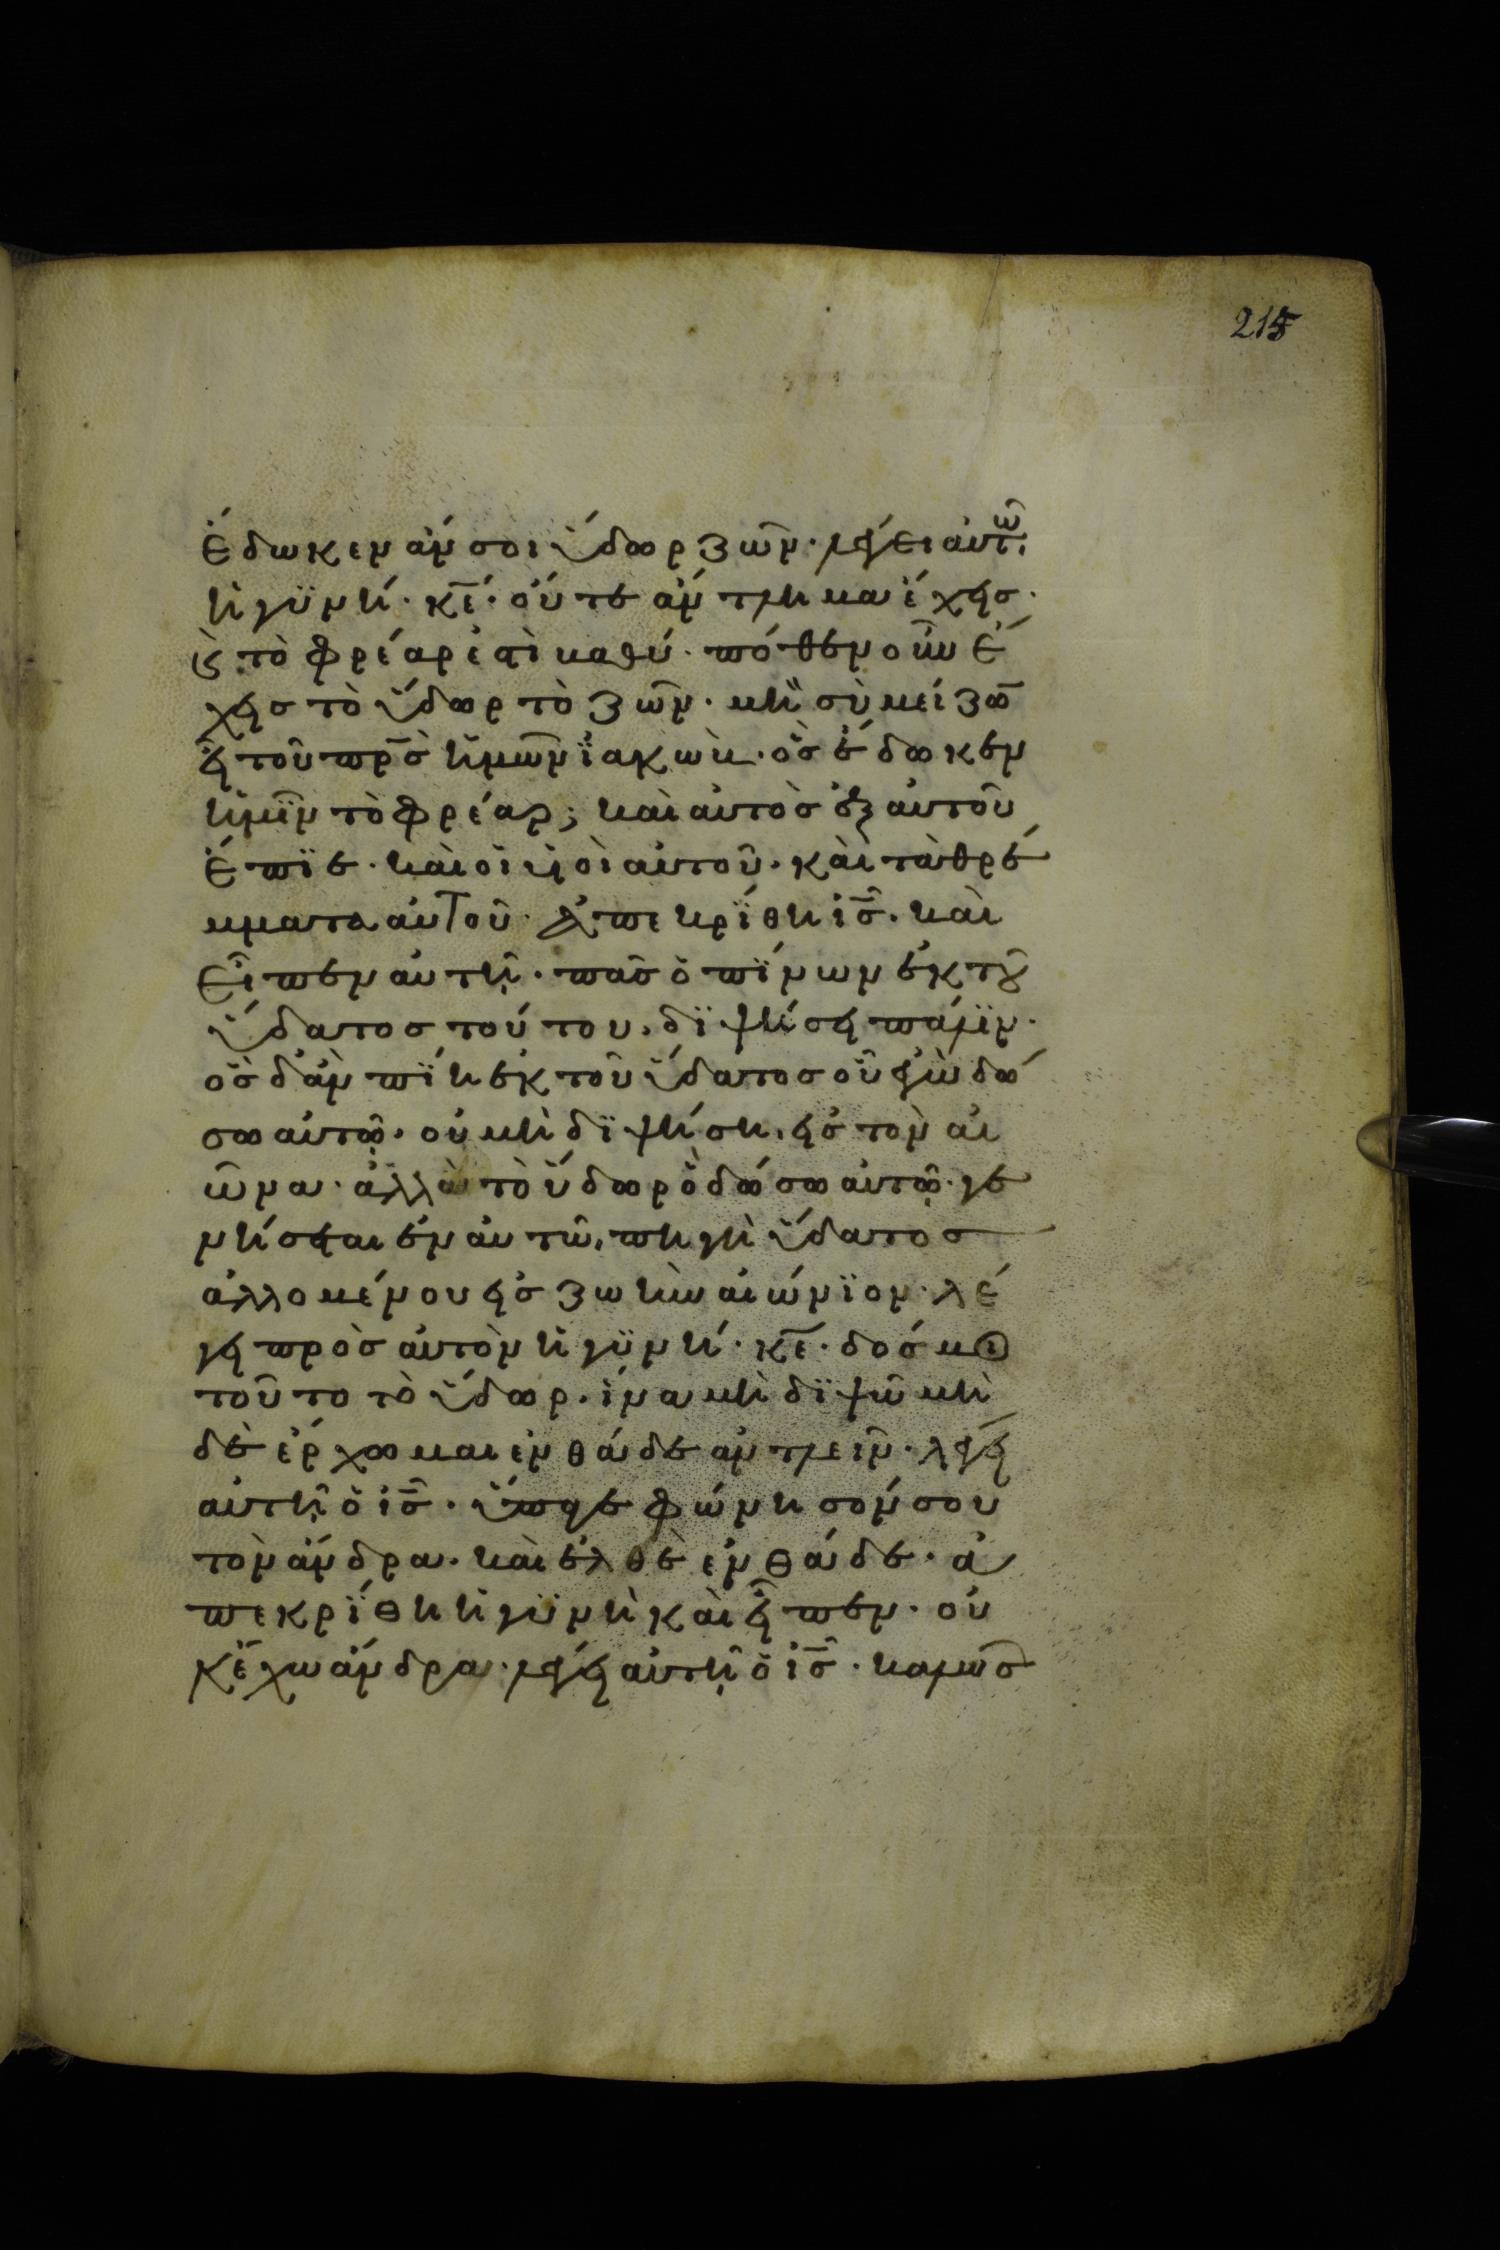 215
ἔδωκεν ἄν σοι ὕδωρ ζῶν· λέγει αὐτῶ
ἡ γϋνή· κ̅ε̅· οὔτε ἄντλημα ἔχεις·
κ(αὶ) τὸ φρέαρ ἐστὶ βαθύ· πόθεν οὖν ἔ
χεις τὸ ὕδωρ τὸ ζῶν· μὴ σὺ μείζω̅
εἶ τοῦ πρ̅σ̅ ἡμῶν ϊακώβ· ὃς ἔδωκεν
ἡμῖν τὸ φρέαρ; καὶ αὐτὸς ἐξ αὐτοῦ
ἔπϊε· καὶ οἱ υἱοὶ αὐτοῦ· καὶ τὰ θρέ
μματα αὐτοῦ· ἀπεκρίθη ι̅ς̅· καὶ
εἶπεν αὐτῇ· πᾶς ὁ πίνων ἐκ τοῦ
ὕδατος τούτου, δϊψήσει πάλϊν·
ὃς δ' ἂν πίη ἐκ τοῦ ὕδατος οὗ ἐγὼ δώ
σω αὐτῷ· οὐ μὴ δϊψήση, εἰς τὸν αἰ
ῶνα· ἀλλὰ τὸ ὕδωρ ὃ δώσω αὐτῷ· γε
νήσεται ἐν αὐτῶ, πηγὴ ὕδατος
ἀλλομένου εἰς ζωὴν αἰώνϊον· λέ
γει πρὸς αὐτὸν ἡ γϋνή· κ̅ε̅· δός μοι
τοῦτο τὸ ὕδωρ· ἵνα μὴ δϊψῶ μὴ
δὲ ἔρχωμαι ἐνθάδε ἀντλεῖν· λέγει
αὐτῇ ὁ ι̅ς̅· ὕπαγε φώνησον σου
τὸν ἄνδρα· καὶ ἐλθὲ ἐνθάδε· ἀ
πεκρίθη ἡ γϋνὴ καὶ εἶπεν· οὐ
κ ἔχω ἄνδρα· λέγει αὐτῇ ὁ ι̅ς̅· καλῶς